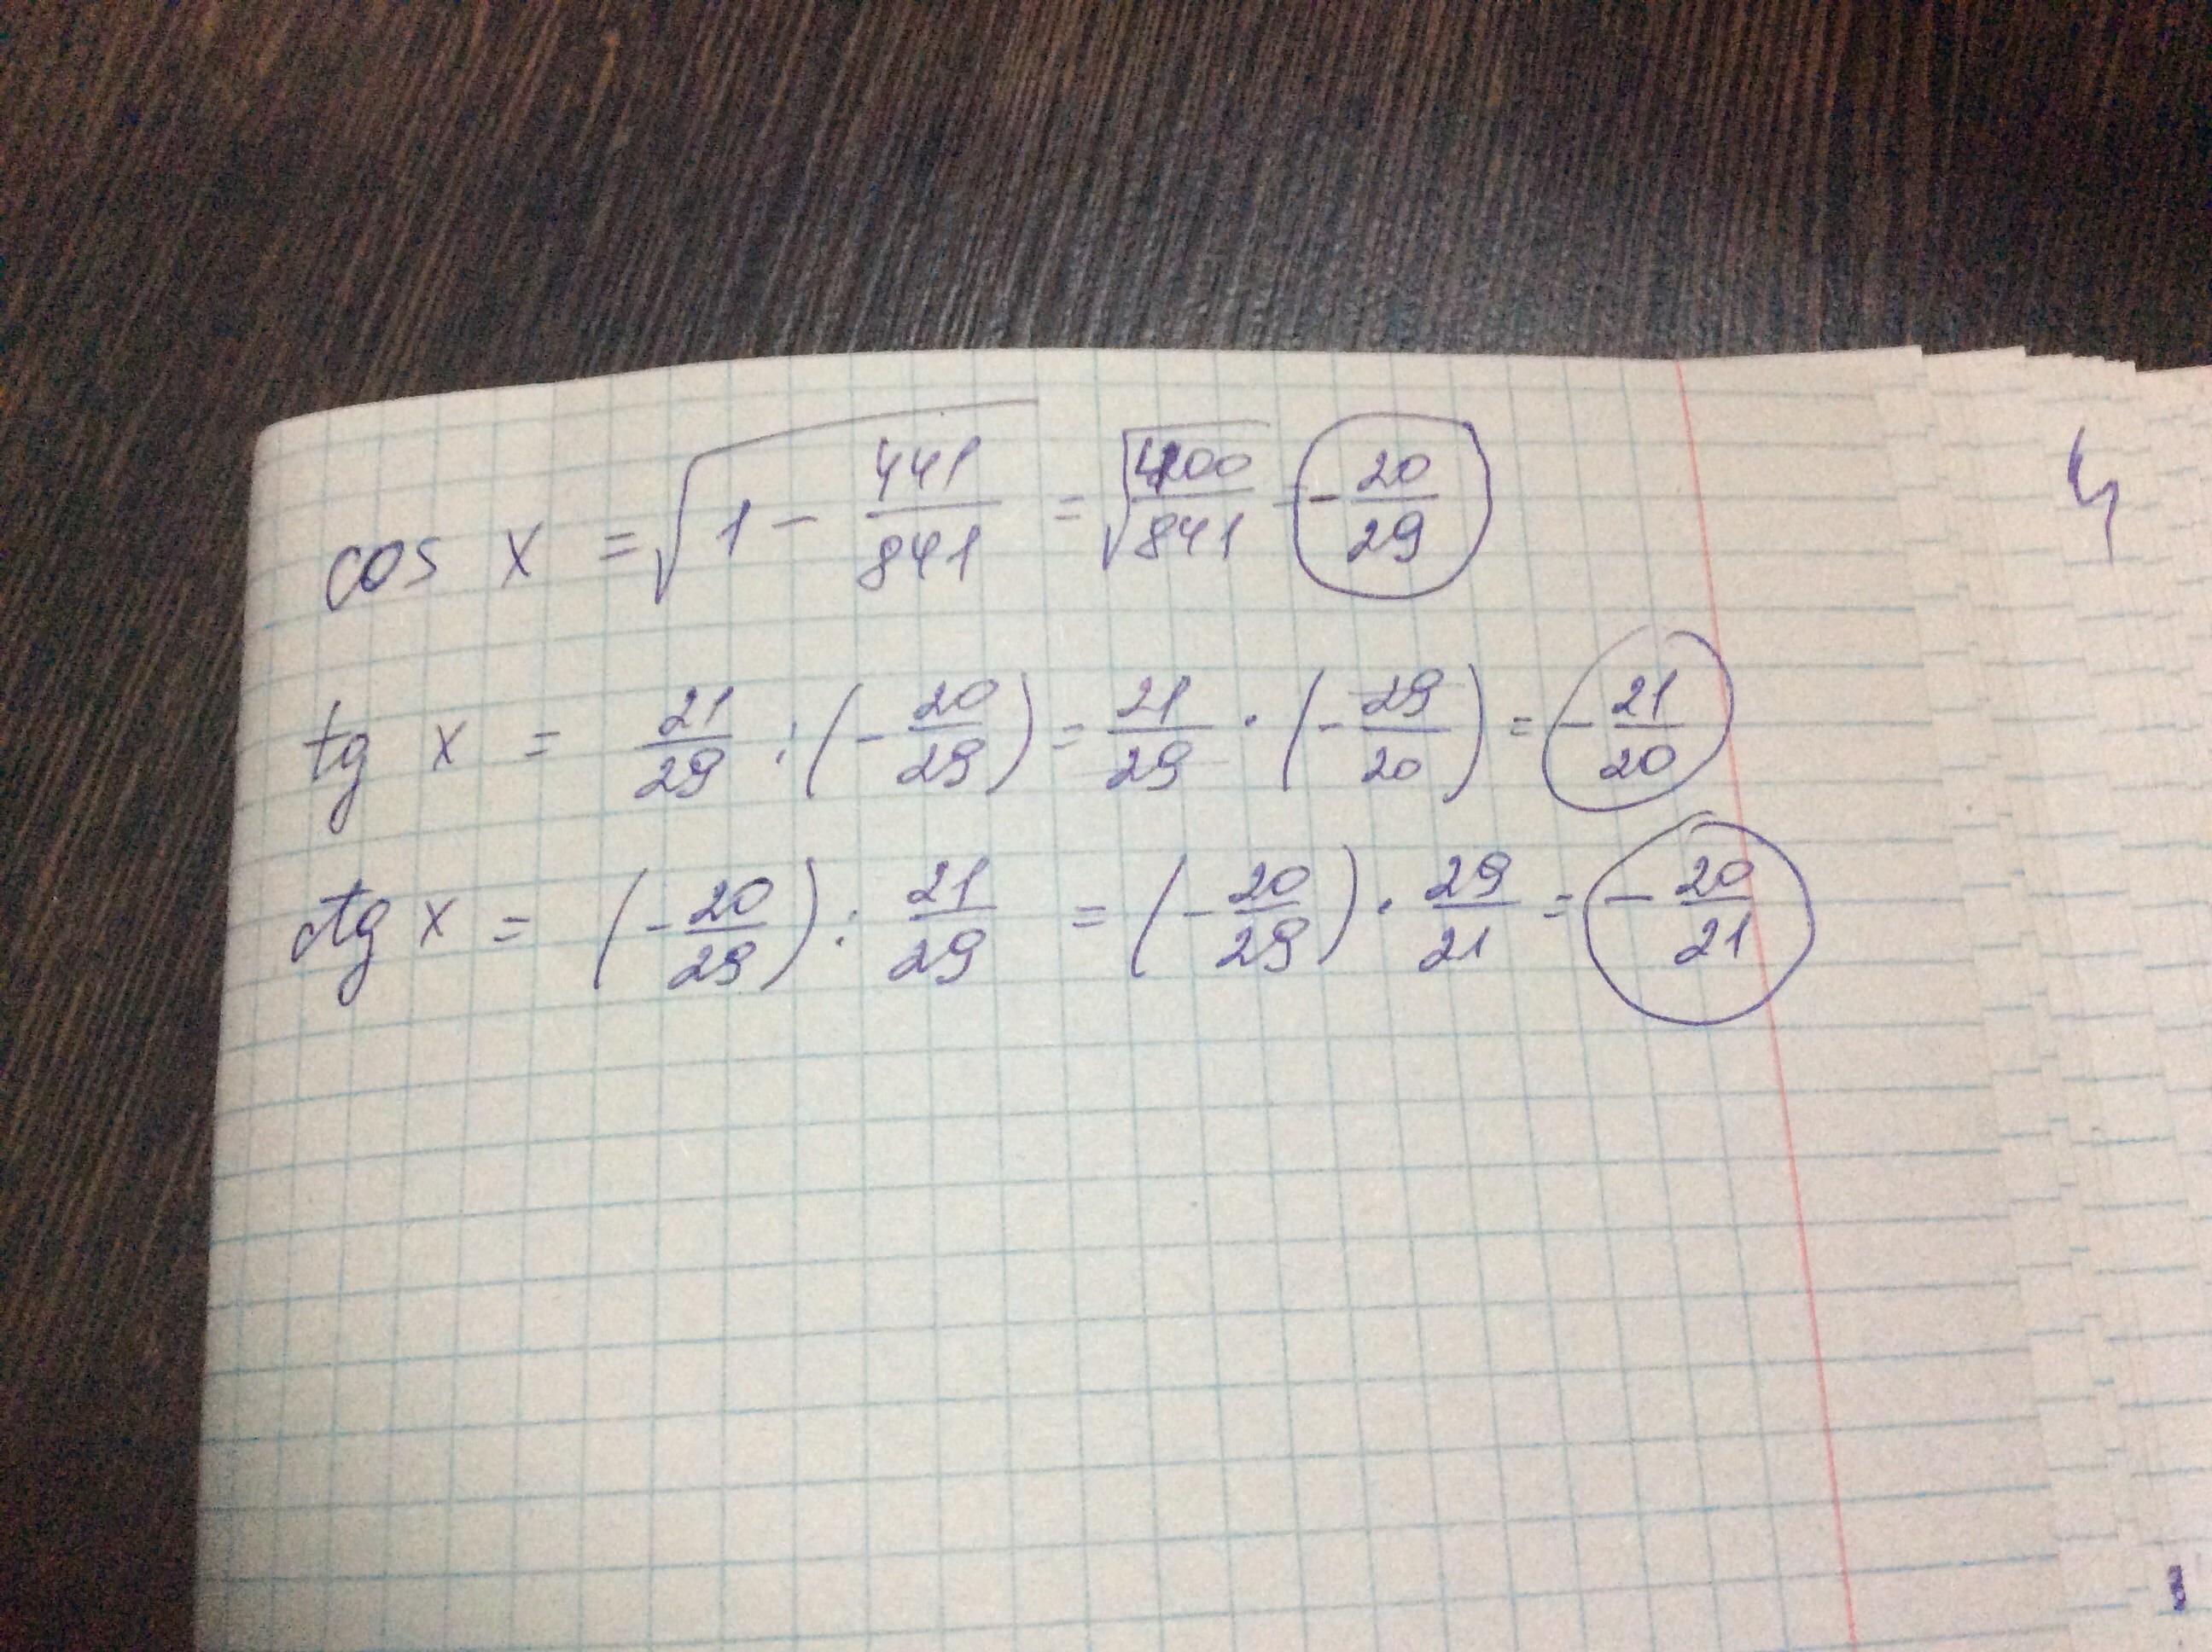 cos x = √(1 - 441/841) = √(400/841) = - 20/29
tg x = 21/29 : (- 20/29) = 21/29 · (- 29/20) = - 21/20
ctg x = (- 20/29) : 21/29 = (- 20/29) · 29/21 = - 20/21